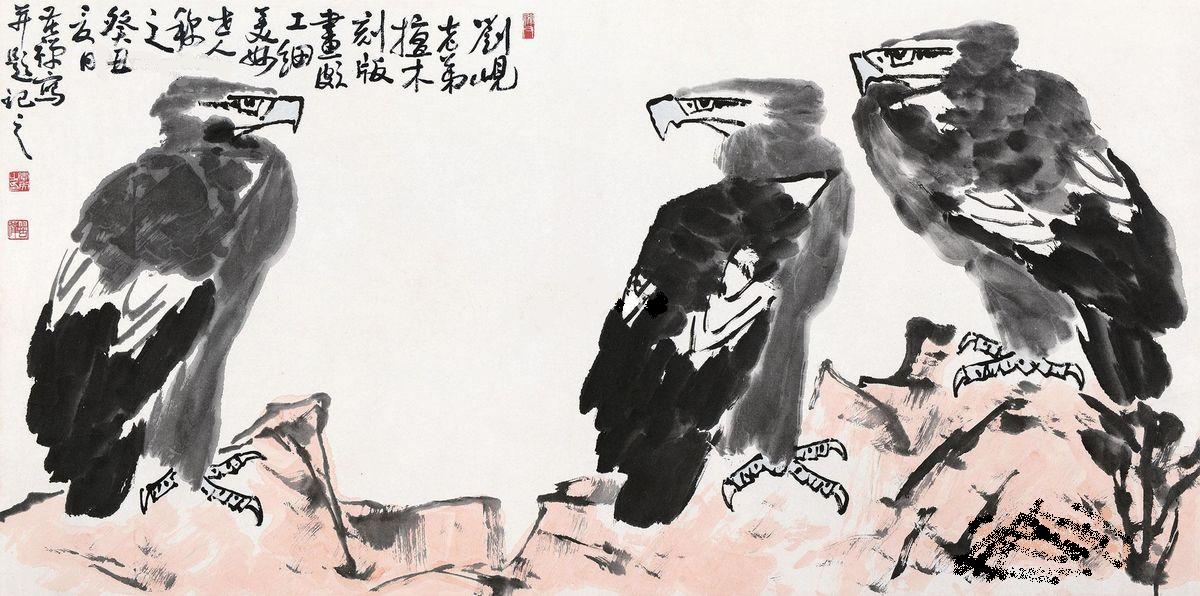 劉峴
老弟
擅木
刻版
畫頗
工細
美妙
世人
称
之
癸丑
夏月
苦禅寫
并題記之